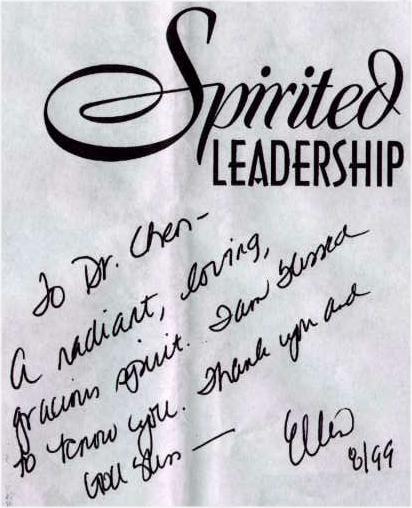 Spirited
LEADERSHIP
To Dr. Chen-
A radiant, loving,
gracious spirit. I am blessed
to know you. Thank you and
God Bless —
Ellen
8/99